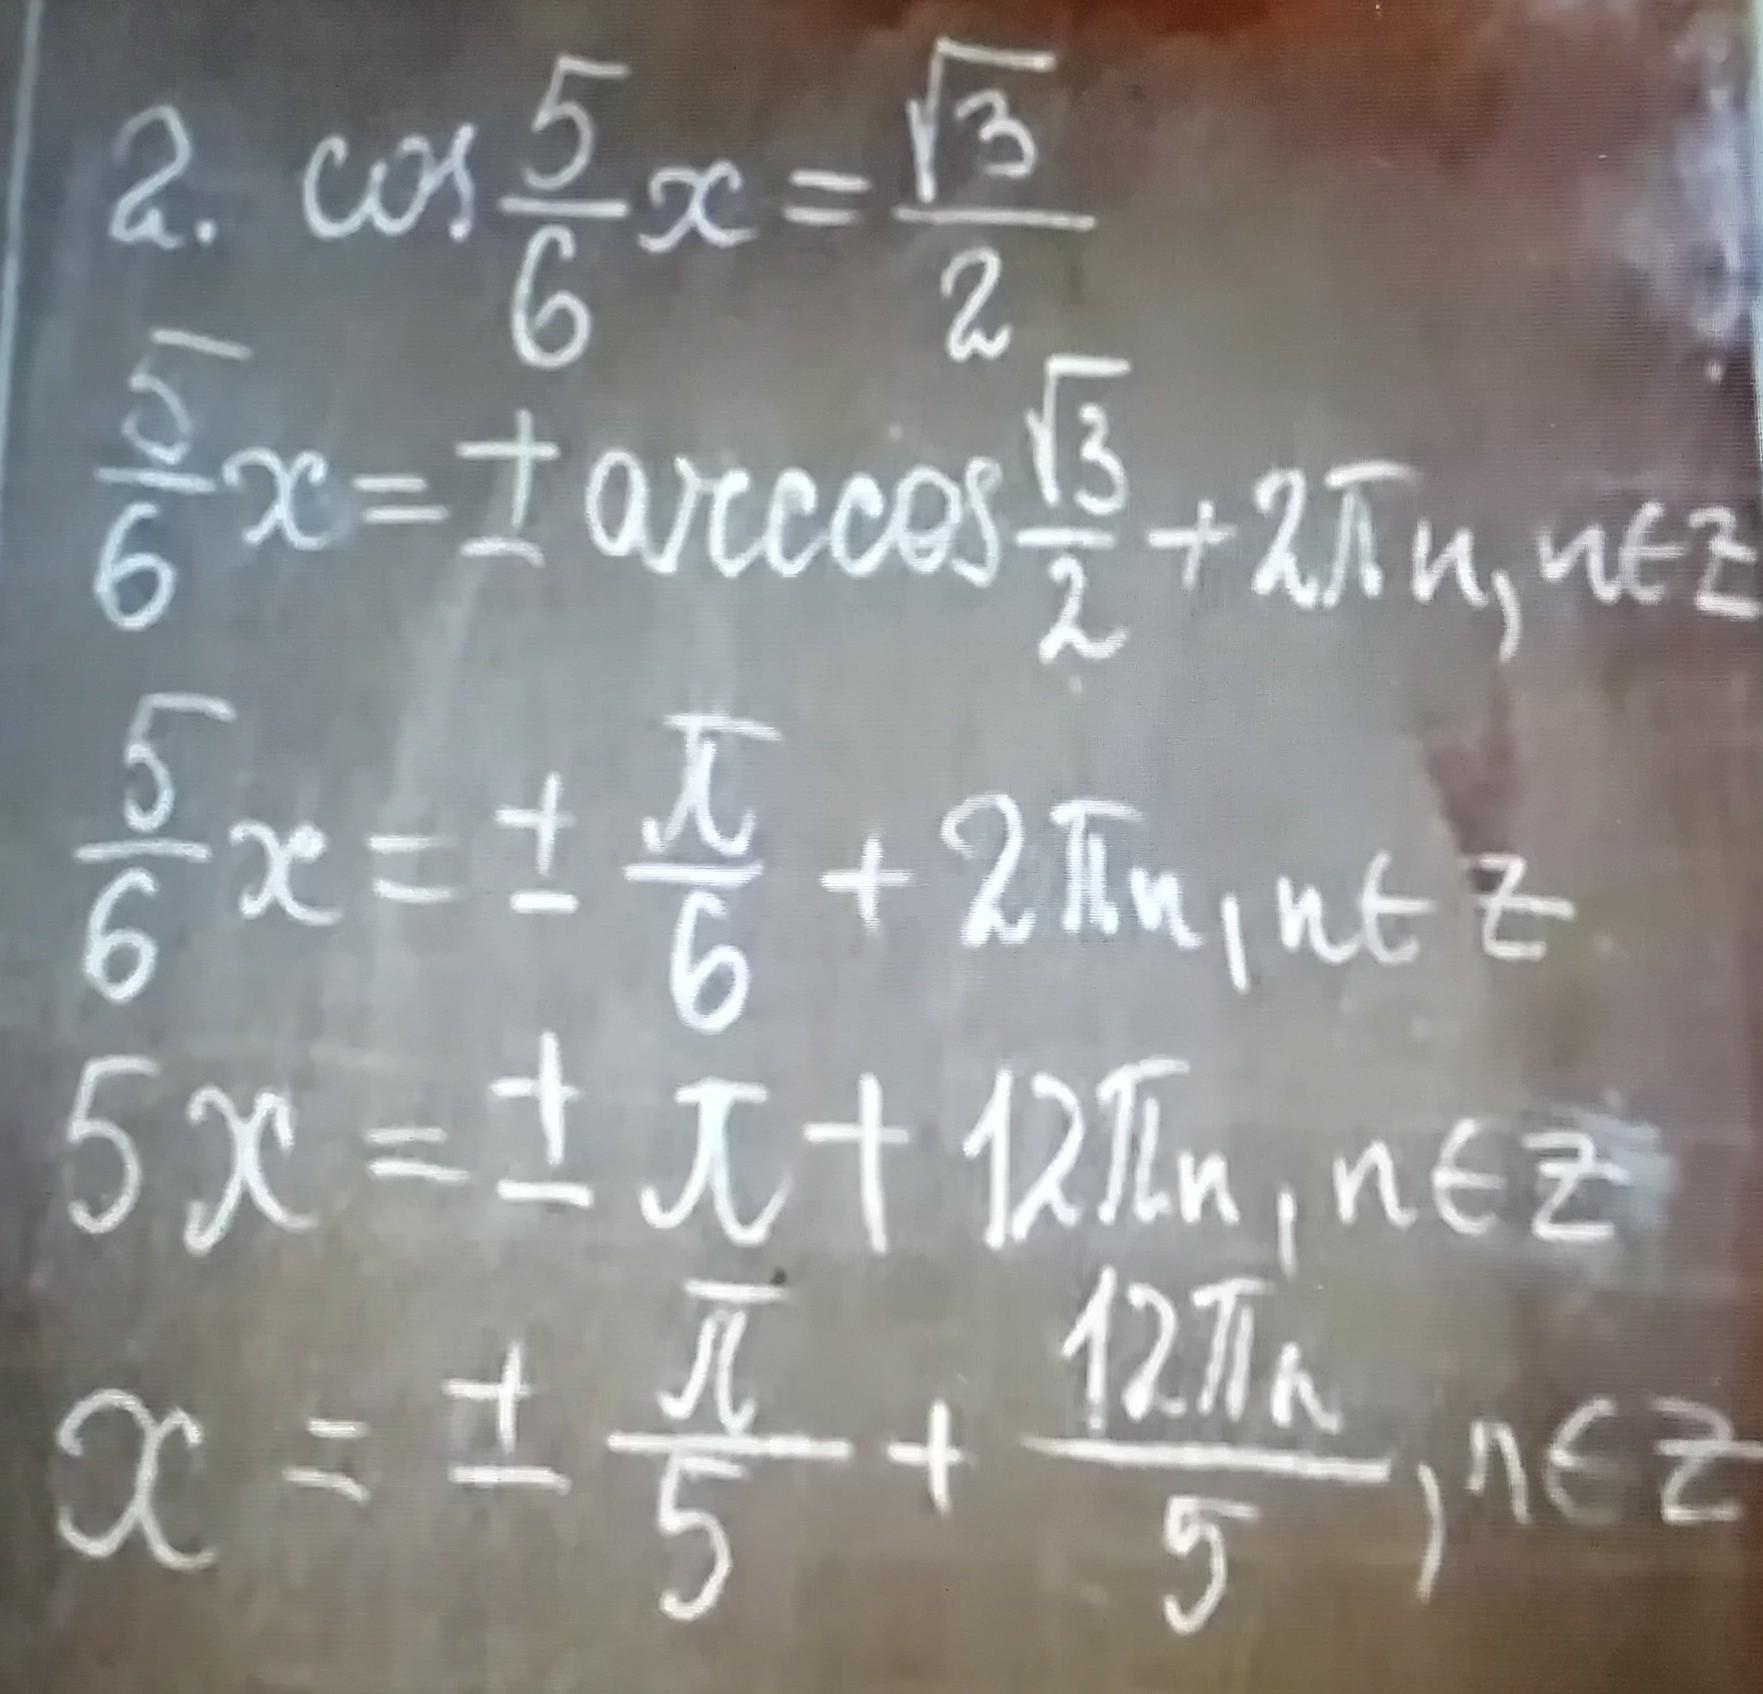 2. cos 5/6 x = √3/2
5/6 x = ± arccos √3/2 + 2πn, n∈Z
5/6 x = ± π/6 + 2πn, n∈Z
5x = ± π + 12πn, n∈Z
x = ± π/5 + 12πn/5, n∈Z